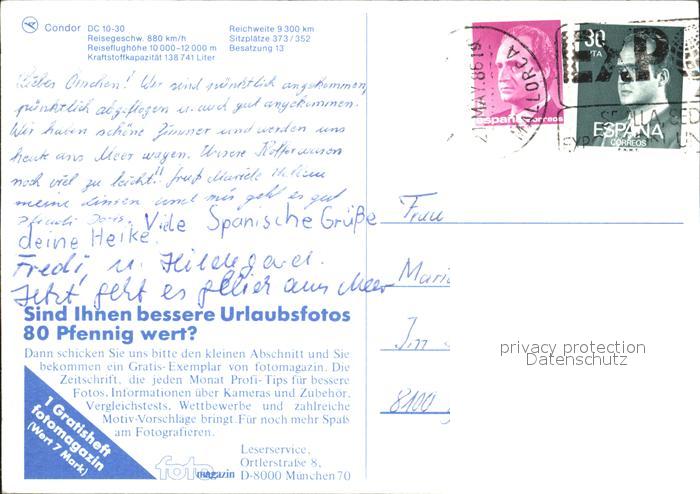 Condor DC 10-30
Reisegeschw. 880 km/h
Reiseflughöhe 10 000–12 000 m
Kraftstoffkapazität 138 741 Liter
Reichweite 9 300 km
Sitzplätze 373/352
Besatzung 13
21 MAY. 86 19
MALLORCA
españa correos
30 PTA
ESPAÑA
CORREOS
F.N.M.T.
EXP
SEVILLA SED
Liebes Omchen! Wir sind pünktlich angekommen,
pünktlich abgeflogen u. auch gut angekommen.
Wir haben schöne Zimmer und werden uns
heute ans Meer wagen. Unsere Koffer waren
noch viel zu leicht!! Gruß
meine und mir geht es gut
Viele Spanische Grüße
deine Heike.
Fredi, u. Hildegard.
Jetzt geht es gleich ans Meer
Frau
Maria
Im
8100
Sind Ihnen bessere Urlaubsfotos
80 Pfennig wert?
Dann schicken Sie uns bitte den kleinen Abschnitt und Sie
bekommen ein Gratis-Exemplar von fotomagazin. Die
Zeitschrift, die jeden Monat Profi-Tips für bessere
Fotos, Informationen über Kameras und Zubehör,
Vergleichstests, Wettbewerbe und zahlreiche
Motiv-Vorschläge bringt. Für noch mehr Spaß
am Fotografieren.
1 Gratisheft
fotomagazin
(Wert 7 Mark)
foto magazin
Leserservice,
Ortlerstraße 8,
D-8000 München 70
privacy protection
Datenschutz